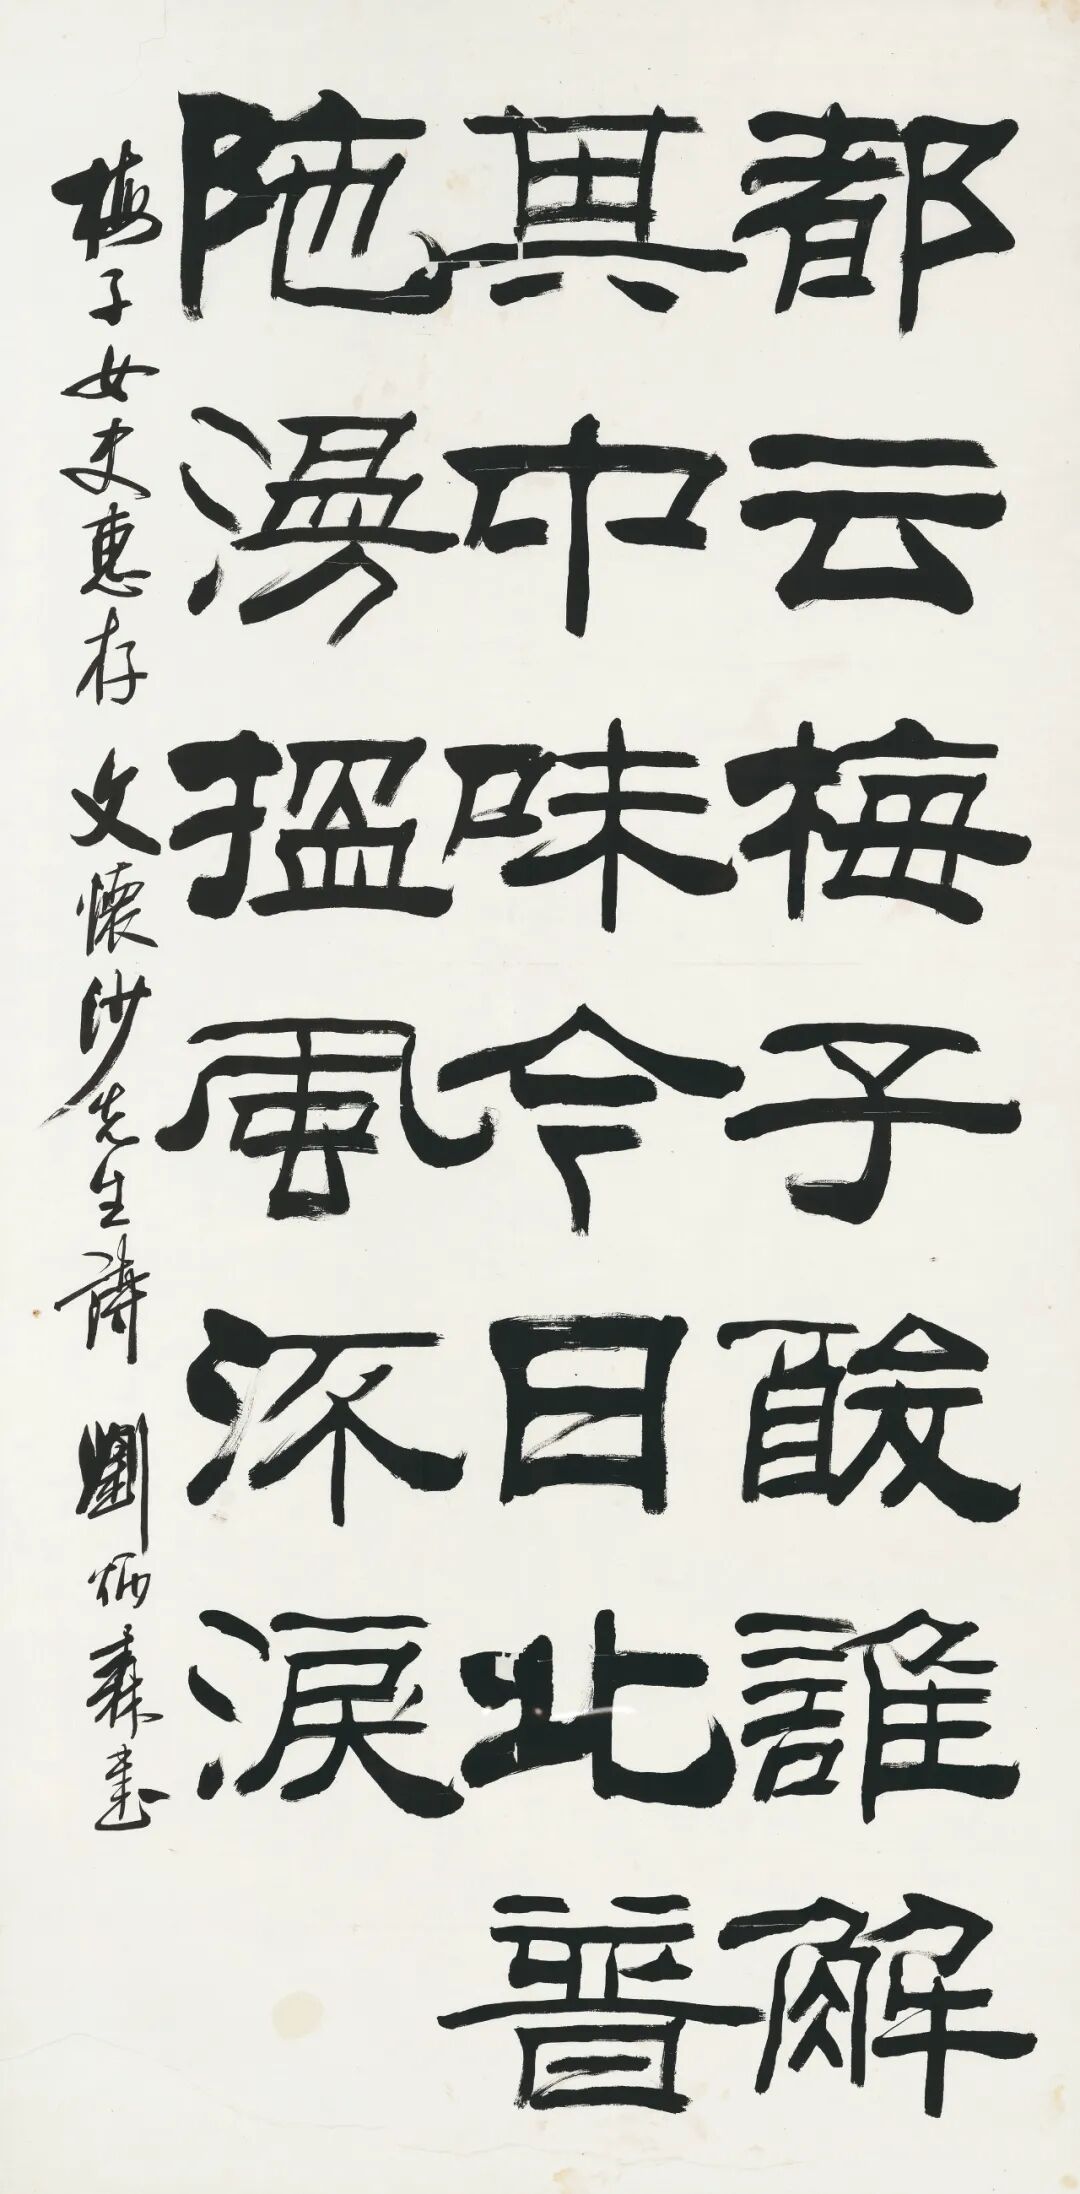 都云梅子酸誰解
其中味今日北普
陀漫搵風淚
梅子女史惠存 文懷沙先生詩 劉炳森書